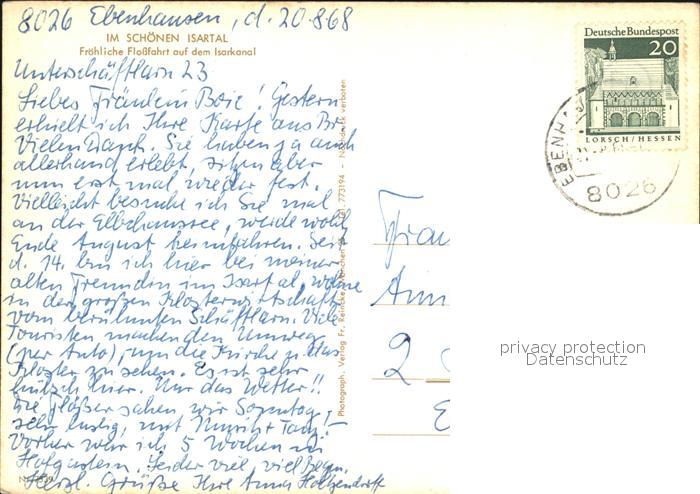 8026 Ebenhausen, d. 20.8.68
IM SCHÖNEN ISARTAL
Fröhliche Floßfahrt auf dem Isarkanal
Unterschäftlarn 23
Liebes Fräulein Boie! Gestern
erhielt ich Ihre Karte aus Br.
Vielen Dank. Sie haben ja auch
allerhand erlebt, sitzen aber
nun erst mal wieder fest.
Vielleicht besuche ich Sie mal
an der Elbchaussee, werde wohl
Ende August heimfahren. Seit
d. 14. bin ich hier bei meiner
alten Freundin im Isartal, wohne
in der großen Klosterwirtschaft
vom berühmten Schäftlarn. Viele
Touristen machen den Umweg
(per Auto), um die Kirche u. das
Kloster zu sehen. Es ist sehr
hübsch hier. Nur das Wetter!!
Die Flößer sahen wir Sonntag,
sehr lustig, mit Musik + Tanz!
Vorher war ich 5 Wochen in
Hofgastein. Leider viel, viel Regen.
Herzl. Grüße Ihre Anna Holtzendorff
Photograph. Verlag Fr. Reincke, München
773194 - Nachdruck verboten
Deutsche Bundespost
20
LORSCH/HESSEN
EBENHA
8026
Frau
Ann
2
privacy protection
Datenschutz